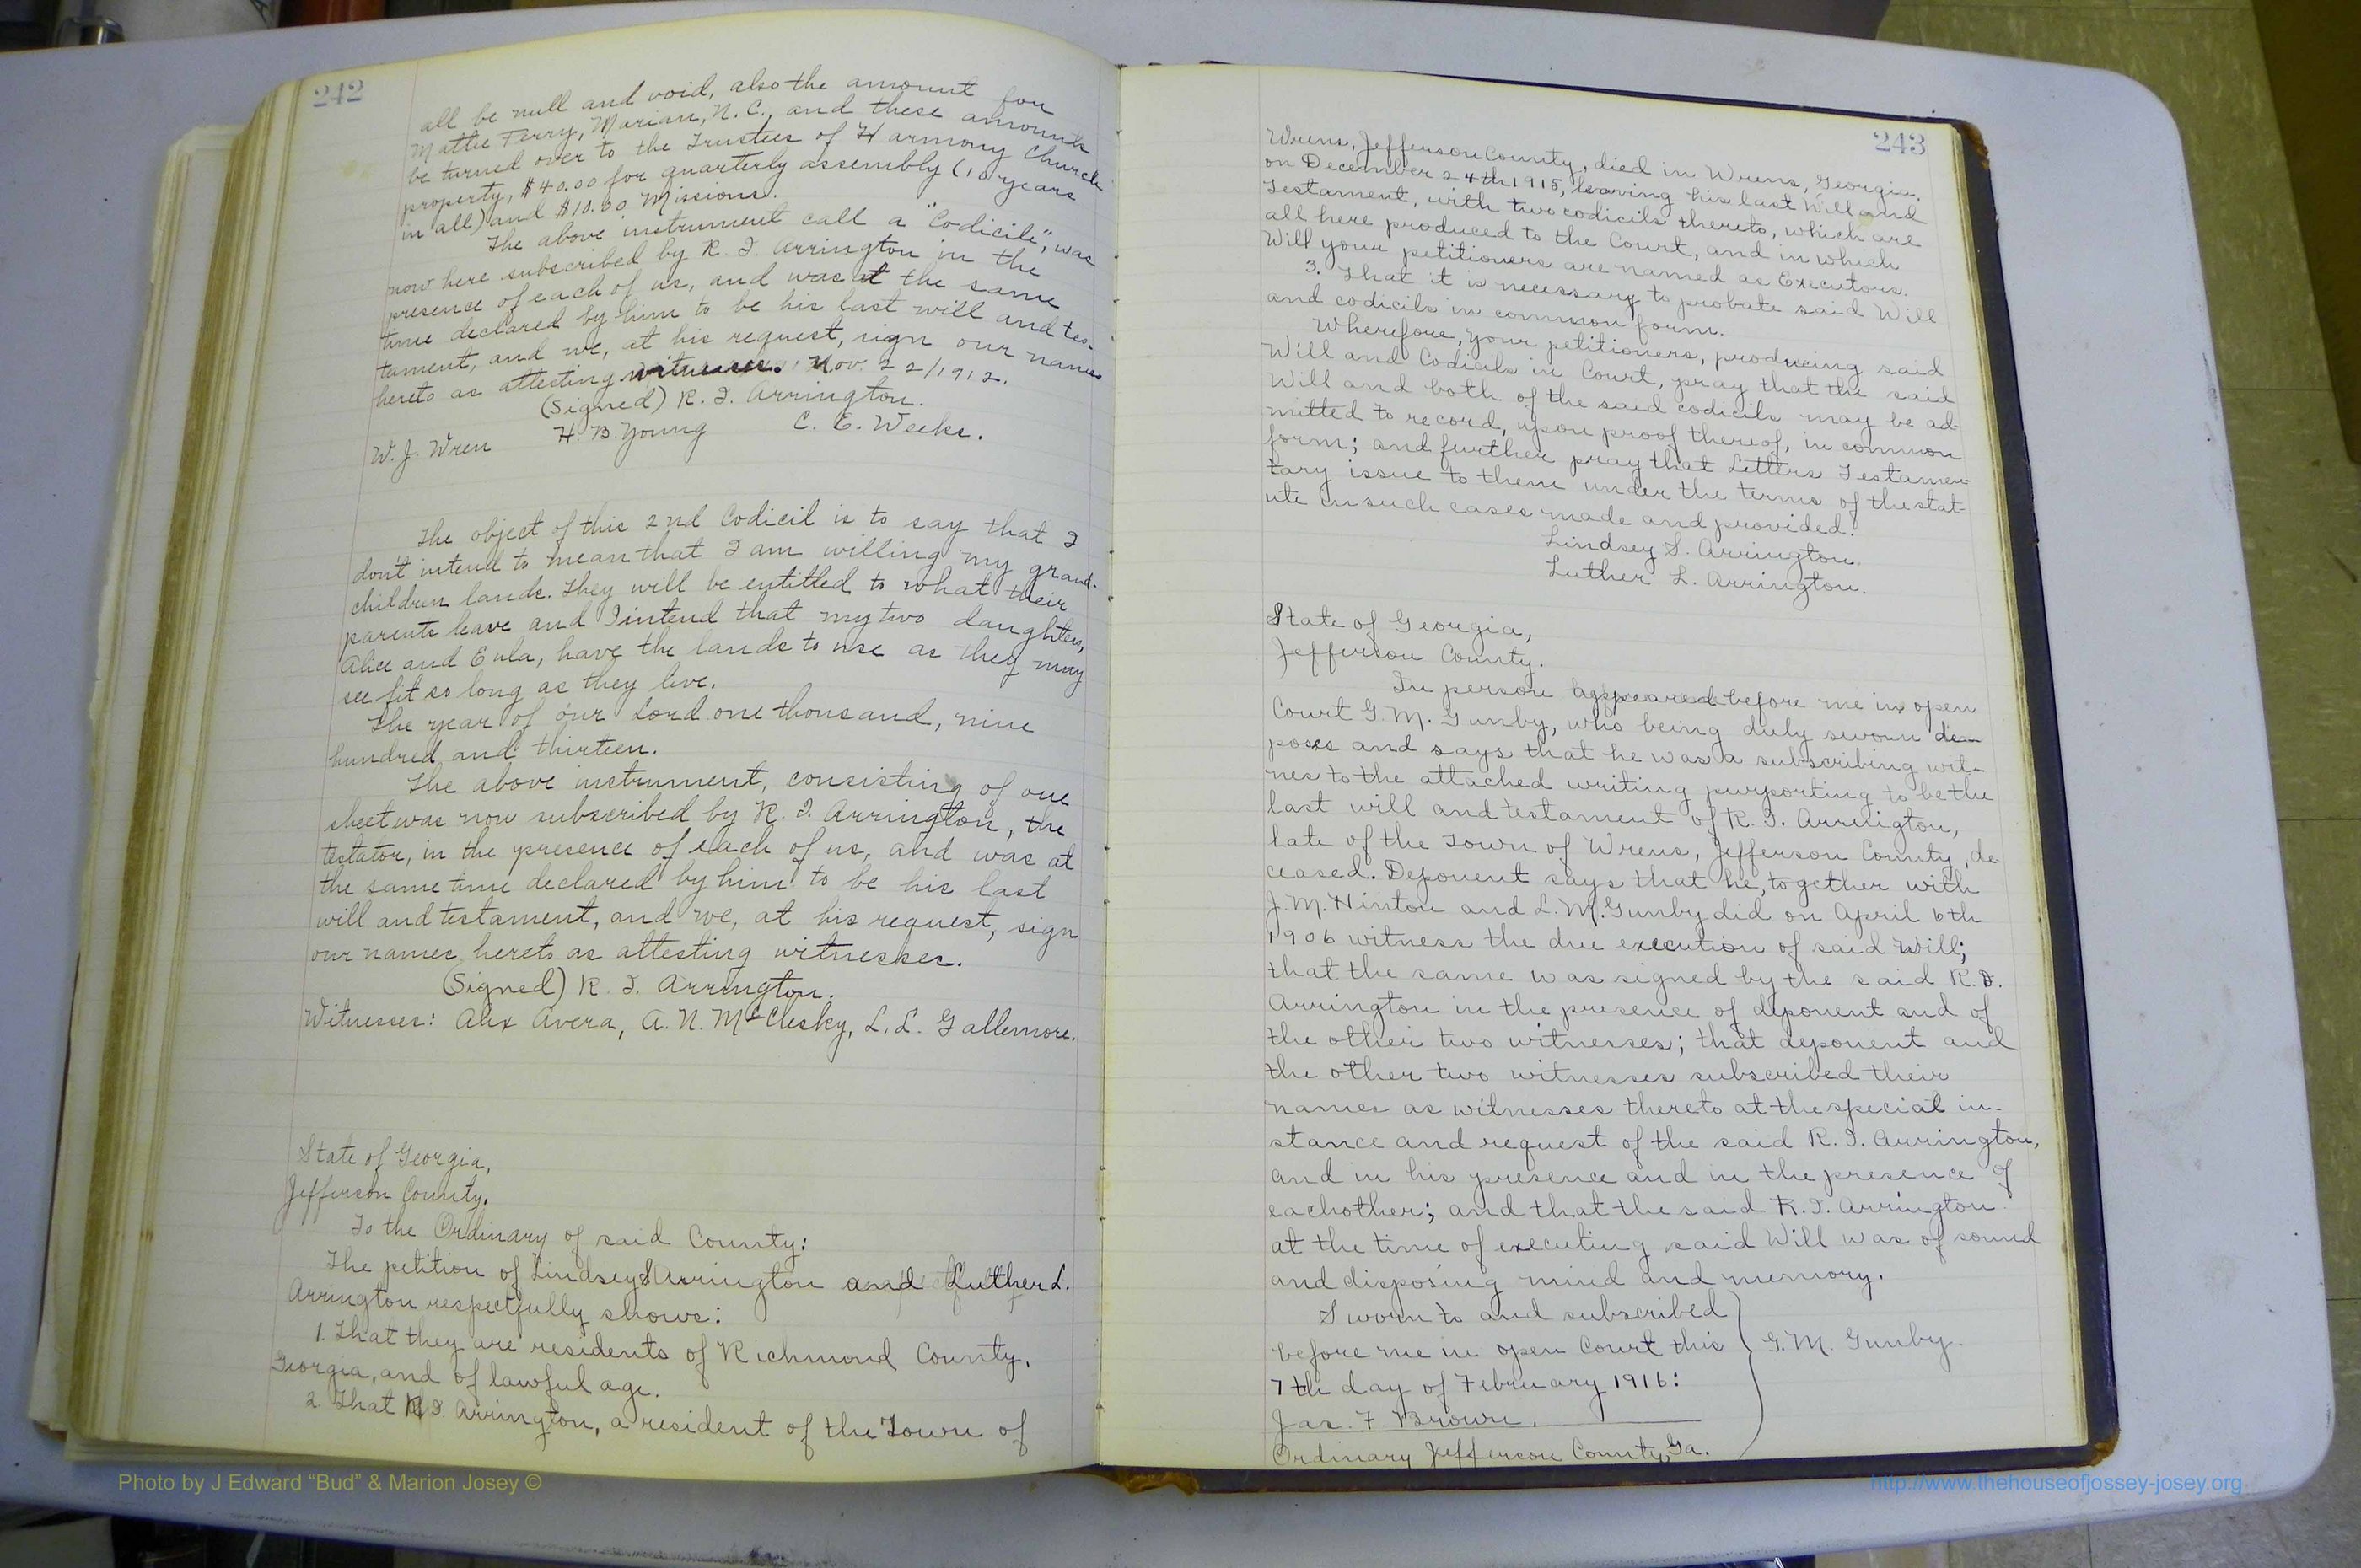 242
all be null and void, also the amount for
Mattie Terry, Marian, N.C., and these amounts
be turned over to the Trustees of Harmony Church
property, $40.00 for quarterly assembly (10 years
in all) and $10.00 Missions.
The above instrument call a "Codicile", was
now here subscribed by R. I. Arrington in the
presence of each of us, and was at the same
time declared by him to be his last will and tes-
tament, and we, at his request, sign our names
hereto as attesting witnesses. Nov. 22/1912.
(Signed) R. I. Arrington.
W. J. Wren H. B. Young C. E. Weeks.
The object of this 2nd Codicil is to say that I
don't intend to mean that I am willing my grand-
children lands. They will be entitled to what their
parents leave and I intend that my two daughters,
Alice and Eula, have the lands to use as they may
see fit so long as they live.
The year of our Lord one thousand, nine
hundred and thirteen.
The above instrument, consisting of one
sheet was now subscribed by R. I. Arrington, the
testator, in the presence of each of us, and was at
the same time declared by him to be his last
will and testament, and we, at his request, sign
our names hereto as attesting witnesses.
(Signed) R. I. Arrington.
Witnesses: Alex Avera, A. N. McClesky, L. L. Gallemore.
State of Georgia,
Jefferson County.
To the Ordinary of said County:
The petition of Lindsey S Arrington and Luther L.
Arrington respectfully shows:
1. That they are residents of Richmond County,
Georgia, and of lawful age.
2 That R I. Arrington, a resident of the Town of
243
Wrens, Jefferson County, died in Wrens, Georgia,
on December 24th 1915, leaving his last Will and
Testament, with two codicils thereto, which are
all here produced to the Court, and in which
Will your petitioners are named as Executors.
3. That it is necessary to probate said Will
and codicils in common form.
Wherefore, your petitioners, producing said
Will and Codicils in Court, pray that the said
Will and both of the said codicils may be ad-
mitted to record, upon proof thereof, in common
form; and further pray that Letters Testamen-
tary issue to them under the terms of the stat-
ute in such cases made and provided.
Lindsey S. Arrington.
Luther L. Arrington.
State of Georgia,
Jefferson County.
In person appeared before me in open
Court G. M. Gunby, who being duly sworn de-
poses and says that he was a subscribing wit-
nes to the attached writing purporting to be the
last will and testament of R. I. Arrington,
late of the Town of Wrens, Jefferson County, de
ceased. Deponent says that he, together with
J. M. Hinton and L. M. Gunby did on April 6th
1906 witness the due execution of said Will;
that the same was signed by the said R. I.
Arrington in the presence of deponent and of
the other two witnesses; that deponent and
the other two witnesses subscribed their
names as witnesses thereto at the special in-
stance and request of the said R. I. Arrington,
and in his presence and in the presence of
eachother; and that the said R. I. Arrington
at the time of executing said Will was of sound
and disposing mind and memory.
Sworn to and subscribed
before me in open Court this G. M. Gunby.
7th day of February 1916:
Jas. F Brown.
Ordinary Jefferson County, Ga.
Photo by J Edward “Bud” & Marion Josey ©
http://www.thehouseofjossey-josey.org